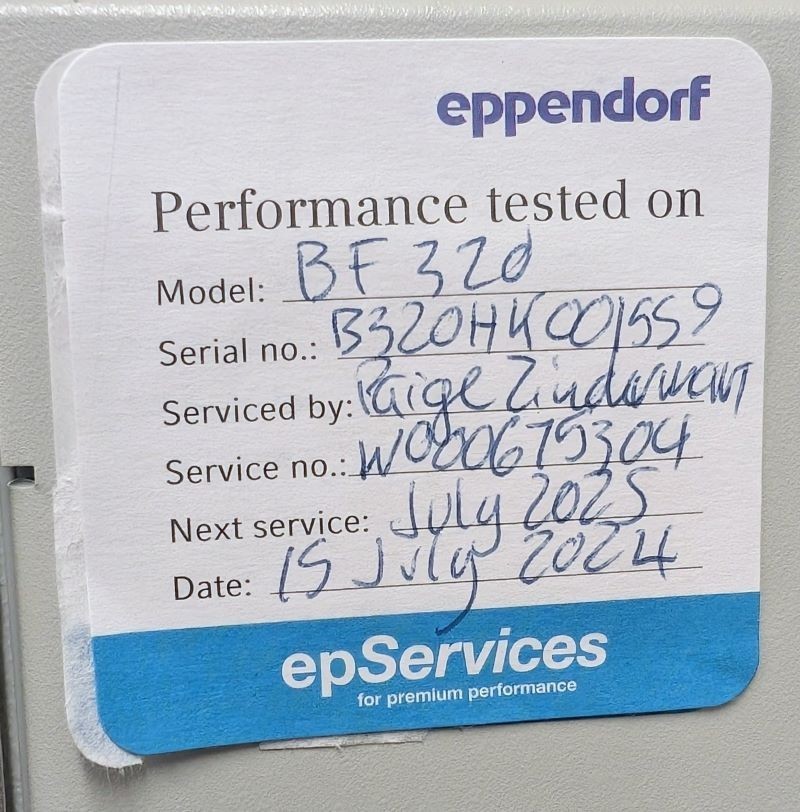 eppendorf
Performance tested on
Model: BF 320
Serial no.: B320HK001559
Serviced by: Paige
Service no.: W000675304
Next service: July 2025
Date: 15 July 2024
epServices
for premium performance